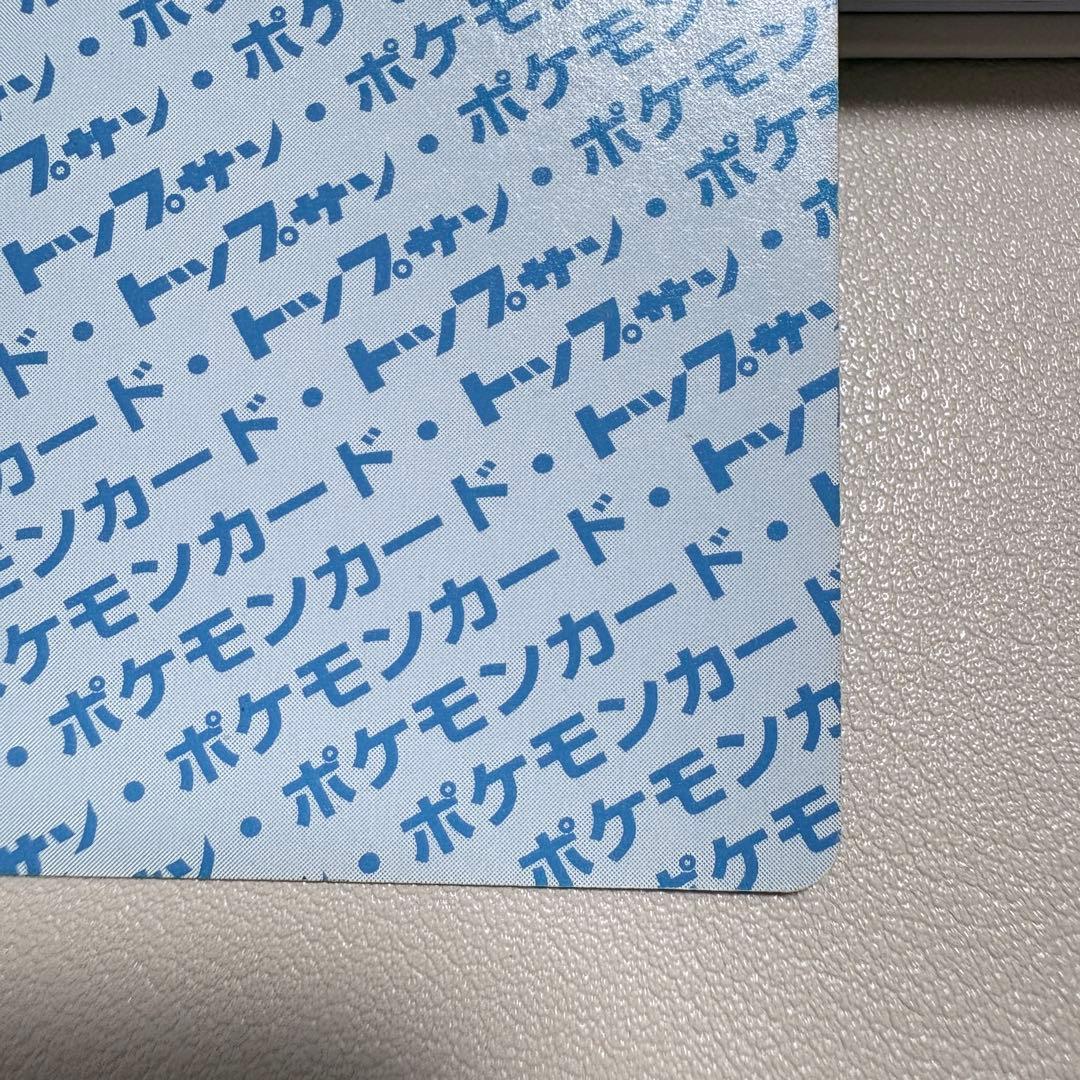 ン・ポ
プサン・ポケ
トップサン・ポケモ
ド・トップサン・ポケモン
カード・トップサン・ポケモン
モンカード・トップサン・ポケ
ケモンカード・トップサン・ポ
・ポケモンカード・トップサン
・ポケモンカード・トップ
サン・ポケモンカード・
ン・ポケモンカード
ポケモンカ
ポケモ